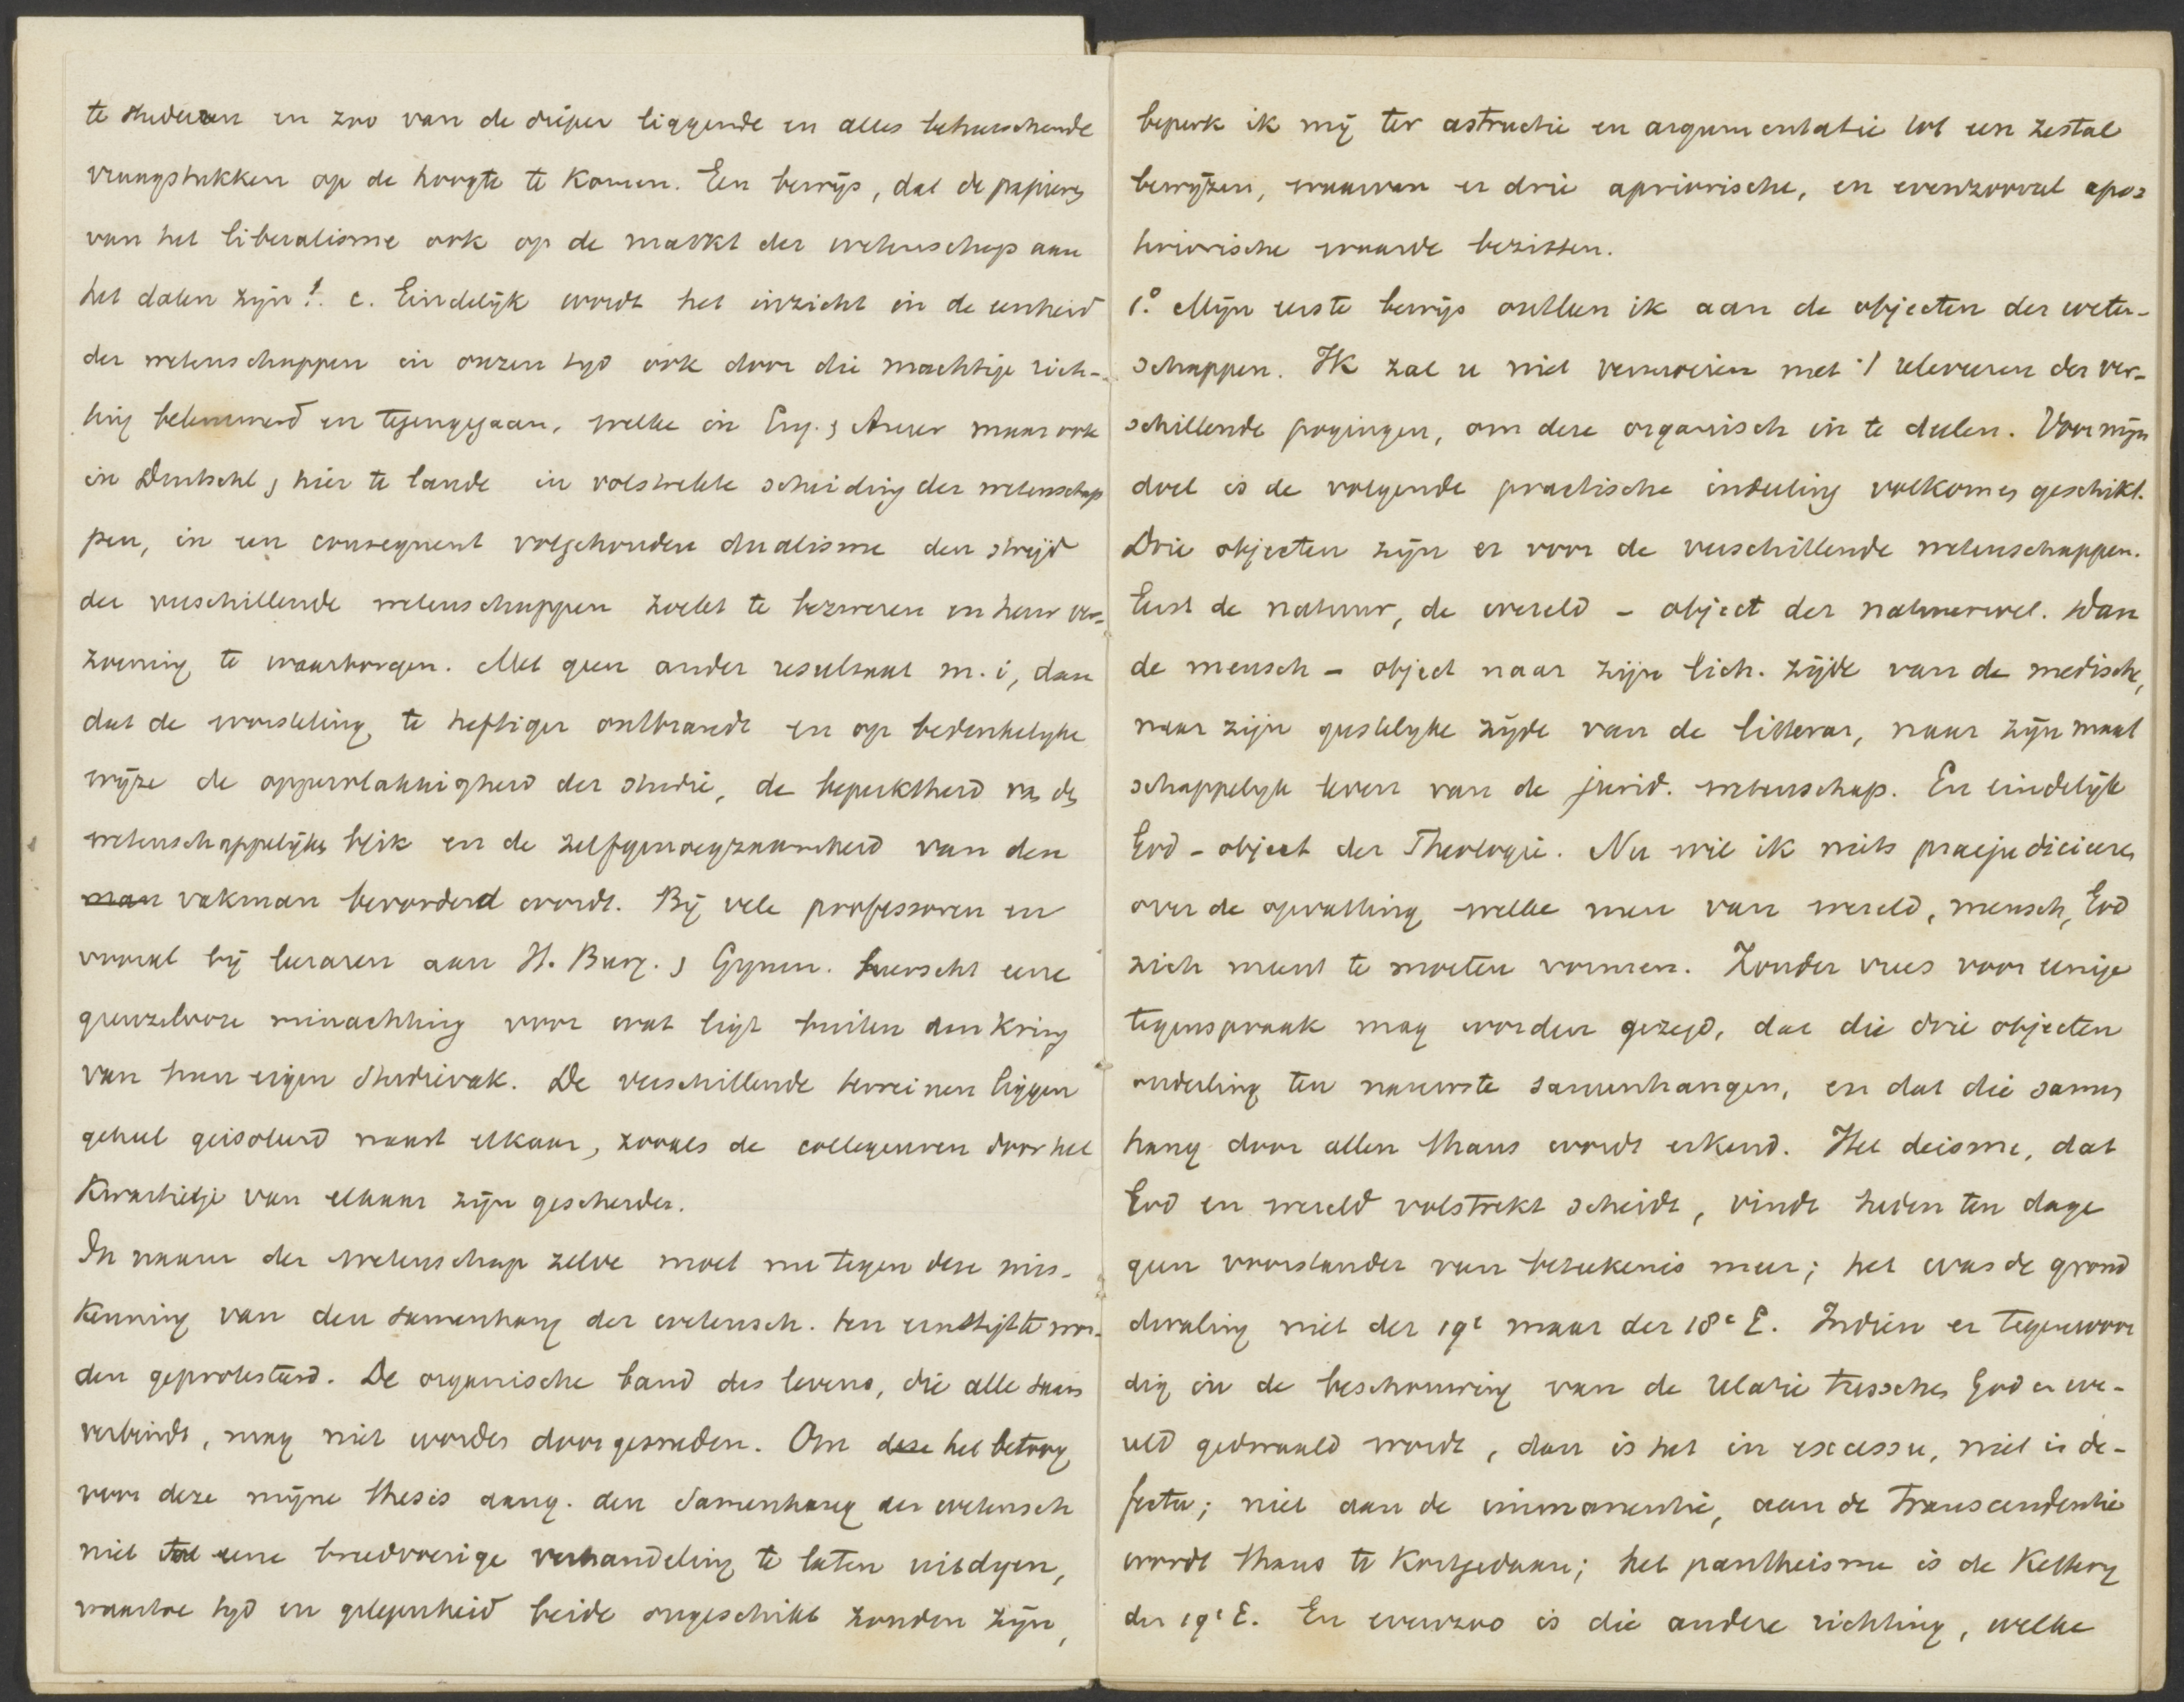 te studeeren en zoo van de dieper liggende en alles beheerschende
vraagstukken op de hoogte te komen. Een bewijs, dat de papieren
van het liberalisme ook op de markt der wetenschap aan
het dalen zijn!. c. Eindelijk wordt het inzicht in de eenheid
der wetenschappen in onzen tyd ook door die machtige rich-
ting belemmerd en tegengegaan, welke in Eng. & Amer maar ook
in Duitschl & hier te lande in volstrekte scheiding der wetenschap
pen, in een consequent volgehouden dualisme den strijd
der verschillende wetenschappen zoekt te bezweren en haar ver-
zoening te waarborgen. Met geen ander resultaat m. i, dan
dat de worsteling te heftiger ontbrandt en op bedenkelyke
wijze de oppervlakkigheid der studie, de beperktheid van den
wetenschappelijken blik en de zelfgenoegzaamheid van den
man vakman bevorderd wordt. Bij vele professoren en
vooral bij leraren aan H. Burg. & Gymn. heerscht eene
grenzelooze minachting voor wat ligt buiten den kring
van hun eigen studievak. De verschillende terreinen liggen
geheel geisoleerd naast elkaar, zooals de collegeuren door het
kwartiertje van elkaar zijn gescheiden.
In naam der wetenschap zelve moet nu tegen deze mis-
kenning van den samenhang der wetensch. ten ernstigste wor-
den geprotesteerd. De organische band des levens, die alle saam
verbindt, mag niet worden doorgesneden. Om deze het betoog
voor deze mijne thesis aang. den samenhang der wetensch
niet tot eene breedvoerige verhandeling te laten uitdyen,
waartoe tyd en gelegenheid beide ongeschikt zouden zijn,
beperk ik mij ter astructie en argumentatie tot een zestal
bewijzen, waarvan er drie apriorische, en evenzooveel apos
teriorische waarde bezitten.
1.° Mijn eerste bewijs ontleen ik aan de objecten der weten-
schappen. Ik zal u niet vermoeien met 't releveeren der ver-
schillende pogingen, om deze organisch in te deelen. Voor mijn
doel is de volgende practische indeeling volkomen geschikt.
Drie objecten zijn er voor de verschillende wetenschappen.
Eerst de natuur, de wereld - object der natuurwet. Dan
de mensch - object naar zijn lich. zijde van de medische,
naar zijn geestelyke zijde van de litterar, naar zijn maat
schappelyk leven van de jurid. wetenschap. En eindelijk
God - object der Theologie. Nu wil ik niets praejudicieeren
over de opvatting welke men van wereld, mensch, God
zich meent te moeten vormen. Zonder vrees voor eenige
tegenspraak mag worden gezegd, dat die drie objecten
onderling ten nauwste samenhangen, en dat die samen
hang door allen thans wordt erkend. Het deisme, dat
God en wereld volstrekt scheidt, vindt heden ten dage
geen voorstander van beteekenis meer; het was de grond
dwaling niet der 19e maar der 18e E. Indien er tegenwoor
dig in de beschouwing van de relatie tusschen God en we-
reld gedwaald wordt, dan is het in excessu, niet in de-
fectu; niet aan de immanentie, aan de transcendentie
wordt thans te kortgedaan; het pantheisme is de ketterij
der 19e E. En evenzoo is die andere richting, welke